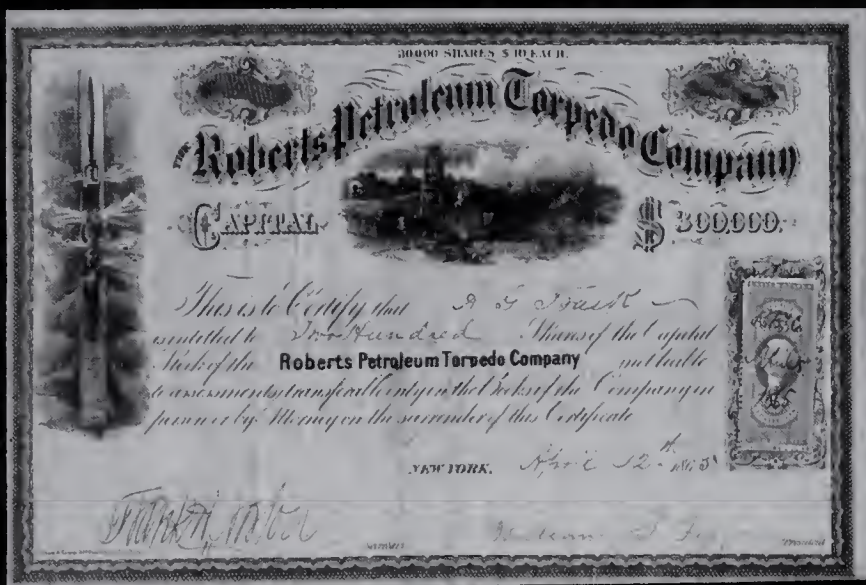 30,000 SHARES $10 EACH.
THE Roberts Petroleum Torpedo Company
CAPITAL $300,000.
This is to Certify that A G Trask
is entitled to Two Hundred Shares of the Capital
Stock of the Roberts Petroleum Torpedo Company not liable
to assessments, transferable only on the Books of the Company in
person or by Attorney on the surrender of this Certificate
NEW YORK, April 12th 1865
Secretary President
1865